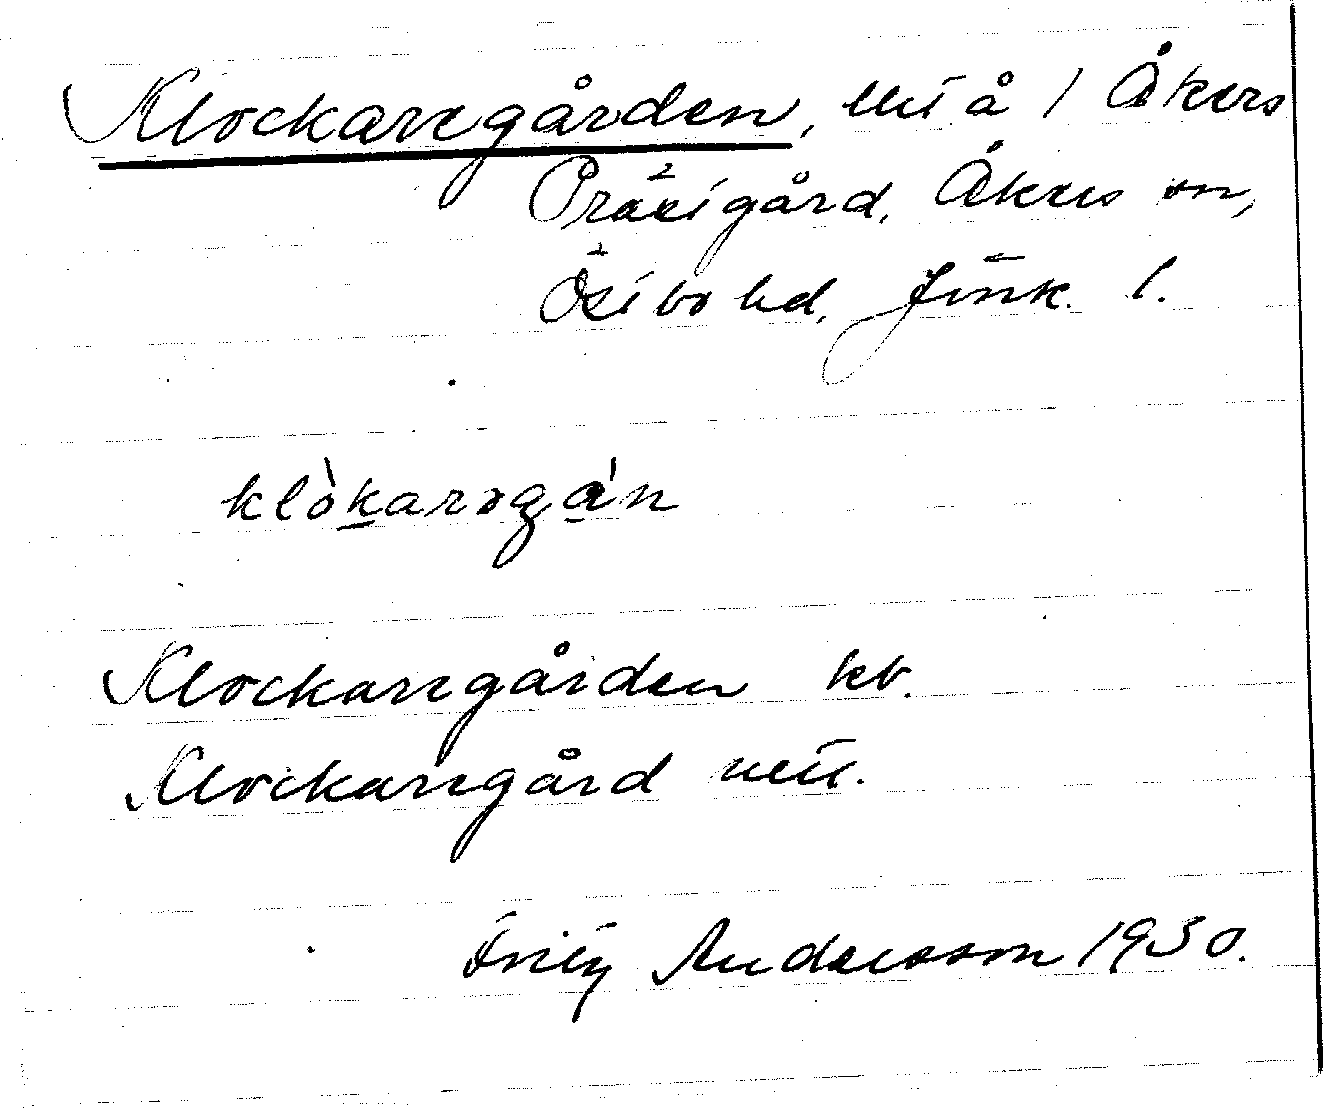 Klockaregården, utj å 1 Åkers
Prästgård, Åkers sn,
Östbo hd, Jönk. l.
klòkarəgɑ́n
Klockaregården kb.
Klockaregård utt.
Fritz Andersson 1930.